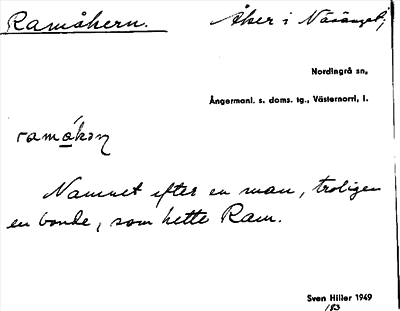 Ramåkern. Åker i Näsänget;
Nordingrå sn.
Ångermanl. s. doms. tg., Västernorrl. l.
ramå̀kəɳ
Namnet efter en man, troligen
en bonde, som hette Ram.
Sven Hiller 1949
183